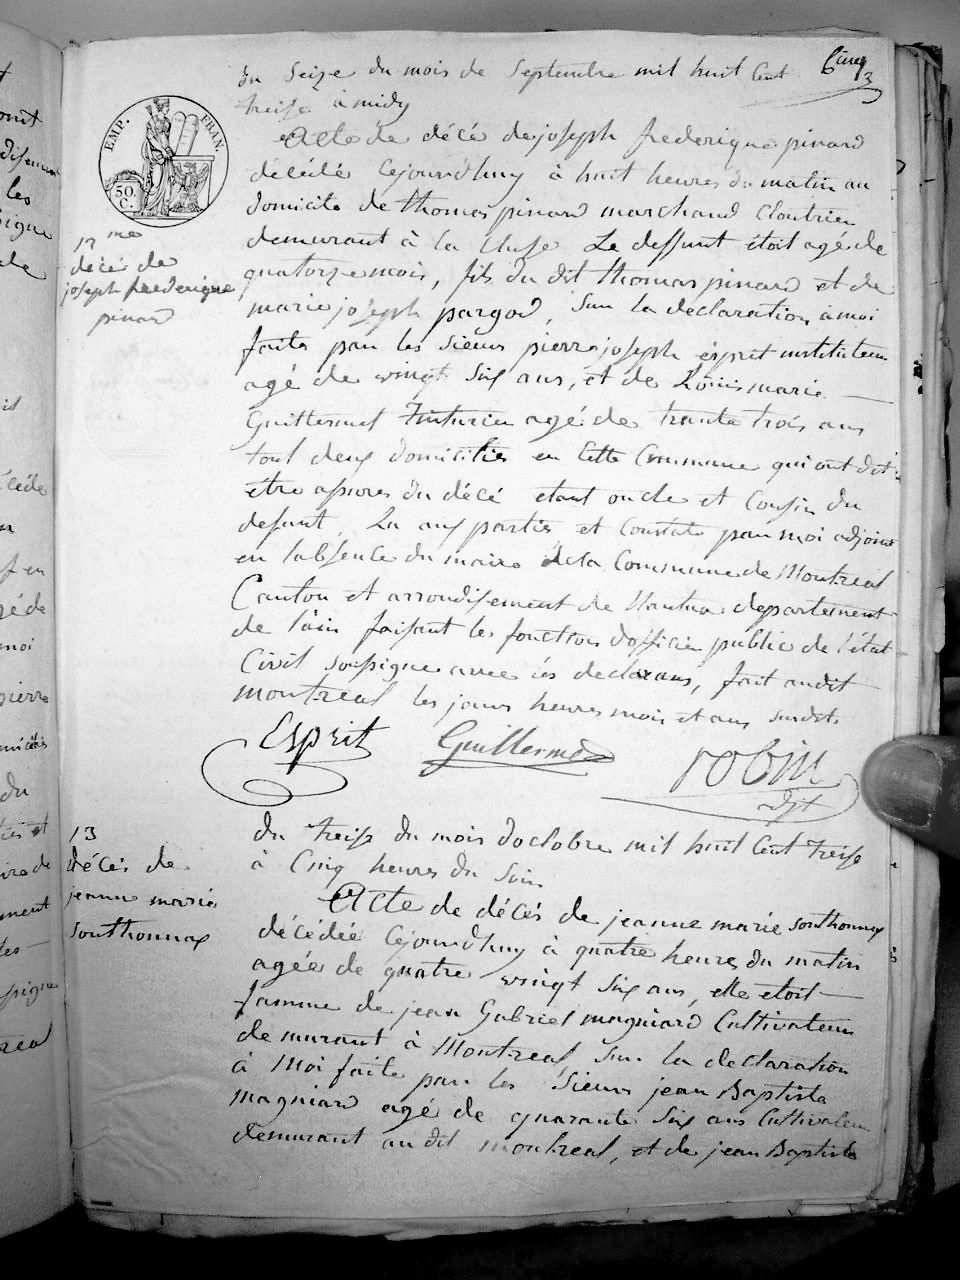 Cinq
3
du Seize du mois de Septembre mil huit Cent
treise à midy
EMP. FRAN.
50 C.
12me
décès de
joseph frederique
pinard
Acte de décé de joseph frederique pinard
décédé Cejourdhuy à huit heures du matin au
domicile de thomas pinard marchand Cloutrier
demeurant à la Cluse Le deffunt étoit agé de
quatorze mois, fils du dit thomas pinard et de
marie joseph pargod, Sur la declaration à moi
faite par les Sieurs pierre joseph ésprit instituteur
agé de vingt Six ans, et de Loüis marie
Guillermet Tinturier agé de trante trois ans
tout deux domiciliés en Cette Commune qui ont dit
étre assures du décé etant oncle et Cousin du
defunt, La aux parties et Constaté par moi adjoint
en labsence du maire de la Commune de Montreal
Canton et arrondisement de Nantua departement
de l'ain faisant les fonctions dofficier public de l'état
Civil soussigne avec les declarans, fait audit
montreal les jours heures mois et ans susdit
Esprit Guillermet robin
adjt
13
décés de
jeanne marie
southonnax
du treise du mois doctobre mil huit Cent treise
à Cinq heures du Soir
Acte de décés de jeanne marie southonnax
décédéé Cejourdhuy à quatre heures du matin
agéé de quatre vingt Six ans, elle étoit
famme de jean Gabriel magniard Cultivateur
demurant à Montreal Sur la declaration
à Moi faite par les Sieurs jean Baptiste
magniard agé de quarante Six ans Cultivateur
demurant au dit montreal, et de jean Baptiste